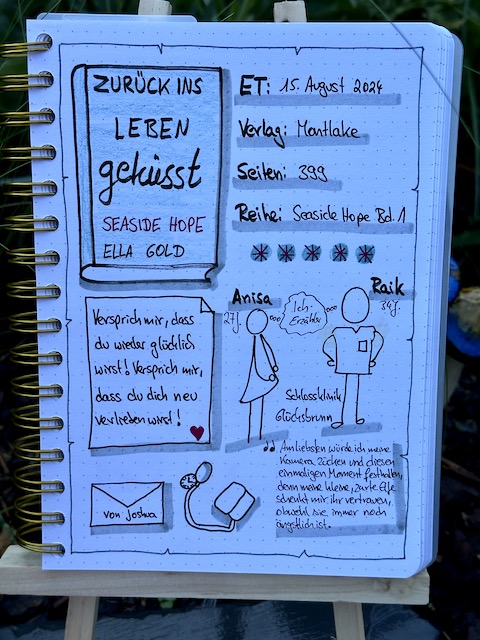 ZURÜCK INS
LEBEN
geküsst
SEASIDE HOPE
ELLA GOLD
ET: 15. August 2024
Verlag: Montlake
Seiten: 399
Reihe: Seaside Hope Bd. 1
Versprich mir, dass
du wieder glücklich
wirst! Versprich mir,
dass du dich neu
verlieben wirst!
Anisa
27 J.
Ich-
Erzähler
Raik
34 J.
Schlossklinik
Glücksbrunn
von Joshua
Am liebsten würde ich meine
Kamera zücken und diesen
einmaligen Moment festhalten,
denn meine kleine, zarte Elfe
schenkt mir ihr Vertrauen,
obwohl sie immer noch
ängstlich ist.